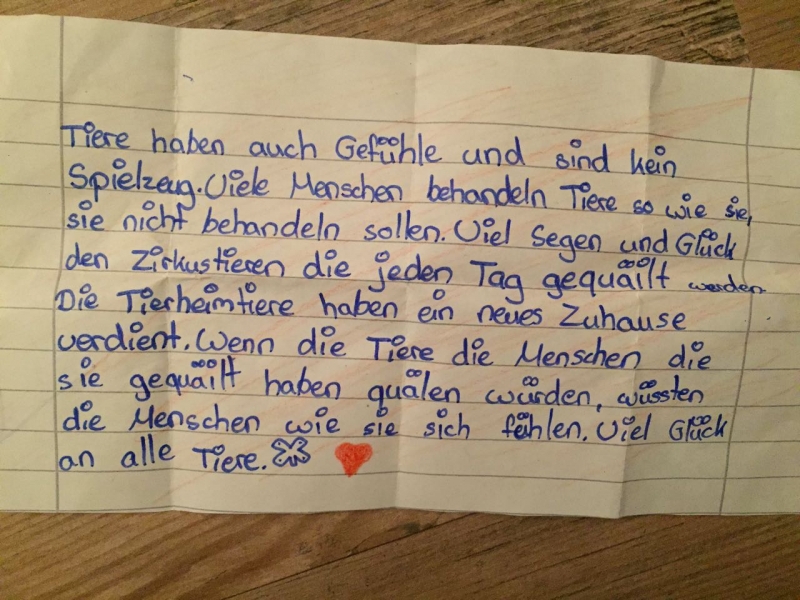 Tiere haben auch Gefühle und sind kein
Spielzeug. Viele Menschen behandeln Tiere so wie sie,
sie nicht behandeln sollen. Viel Segen und Glück
den Zirkustieren die jeden Tag gequäilt werden.
Die Tierheimtiere haben ein neues Zuhause
verdient. Wenn die Tiere die Menschen die
sie gequäilt haben quälen würden, wüssten
die Menschen wie sie sich fühlen. Viel Glück
an alle Tiere.